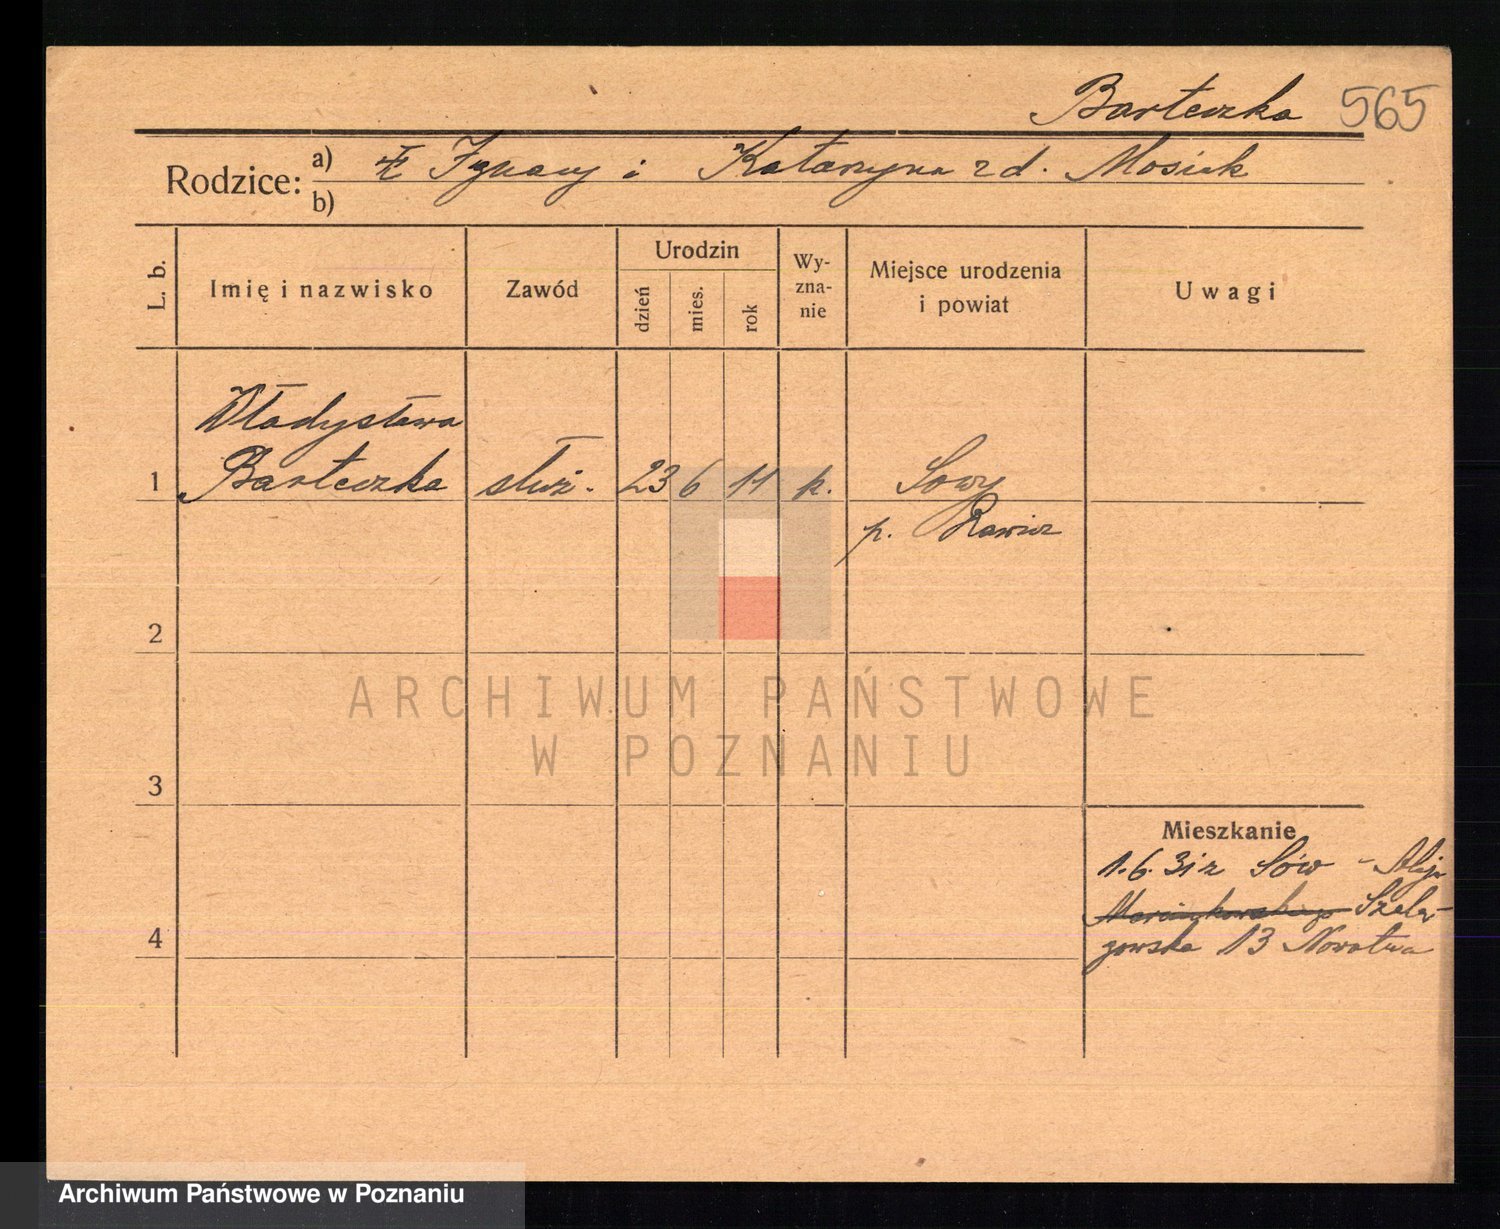 Barteczka 565
Rodzice: a) Ignacy i Katarzyna z d. Mosiek
b)
L. b. Imię i nazwisko Zawód Urodzin dzień mies. rok Wy-zna-nie Miejsce urodzenia i powiat Uwagi
Władysława
1 Barteczka służ. 23 6 11 k. Sowy
p. Rawicz
2
ARCHIWUM PAŃSTWOWE
W POZNANIU
3
Mieszkanie
1.6.31 z Sów - Aleja
Marcinkowskiego Szelą-
4 gowska 13 Nowotna
Archiwum Państwowe w Poznaniu